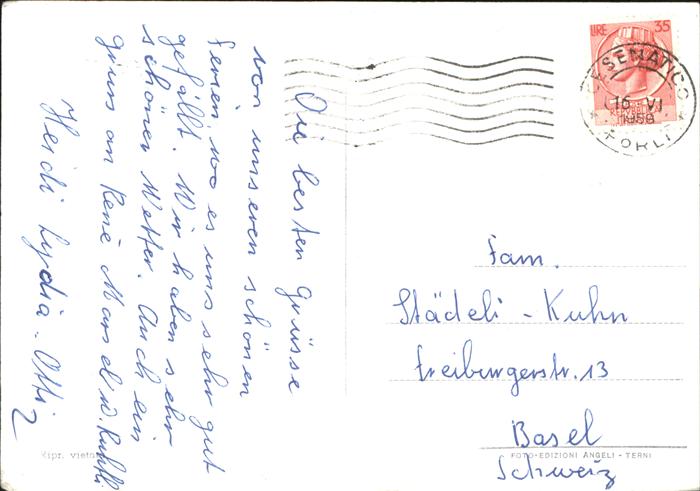 Die besten Grüsse
von unseren schönen
Ferien, wo es uns sehr gut
gefällt. Wir haben sehr
schönes Wetter. Auch ein
gruss an René Marcel u.
Heidi Lydia. Otti
LIRE 35
CESENATICO
16 VI
1959
FORLI
Fam.
Städeli - Kuhn
Freiburgerstr. 13
Basel
Schweiz
Ripr. vietata
FOTO-EDIZIONI ANGELI - TERNI